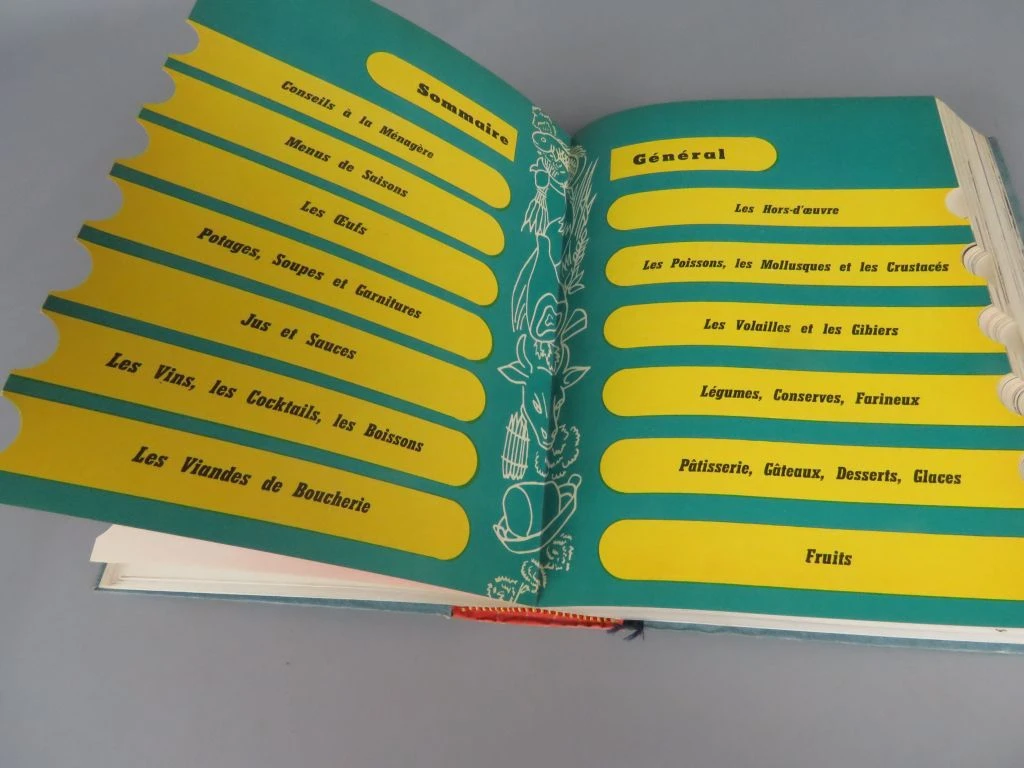 Sommaire
Conseils à la Ménagère
Menus de Saisons
Les Œufs
Potages, Soupes et Garnitures
Jus et Sauces
Les Vins, les Cocktails, les Boissons
Les Viandes de Boucherie
Général
Les Hors-d'œuvre
Les Poissons, les Mollusques et les Crustacés
Les Volailles et les Gibiers
Légumes, Conserves, Farineux
Pâtisserie, Gâteaux, Desserts, Glaces
Fruits